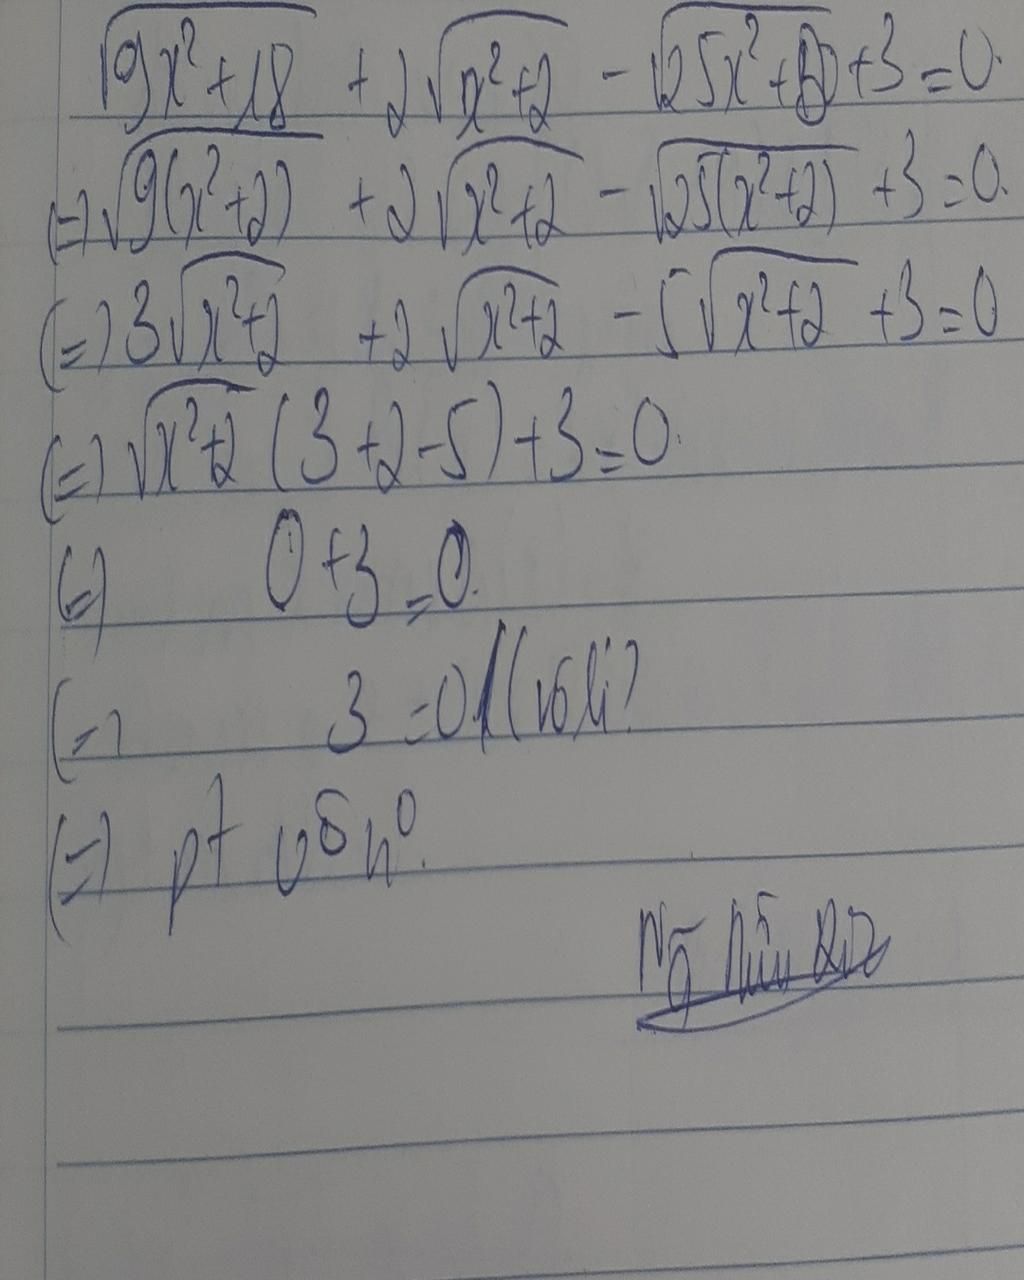 √(9x²+18) + 2√(x²+2) - √(25x²+50) + 3 = 0.
(=) √(9(x²+2)) + 2√(x²+2) - √(25(x²+2)) + 3 = 0.
(=) 3√(x²+2) + 2√(x²+2) - 5√(x²+2) + 3 = 0
(=) √(x²+2) (3+2-5) + 3 = 0.
(=) 0 + 3 = 0.
(=) 3 = 0 (vô lí)
(=) pt vô n⁰.